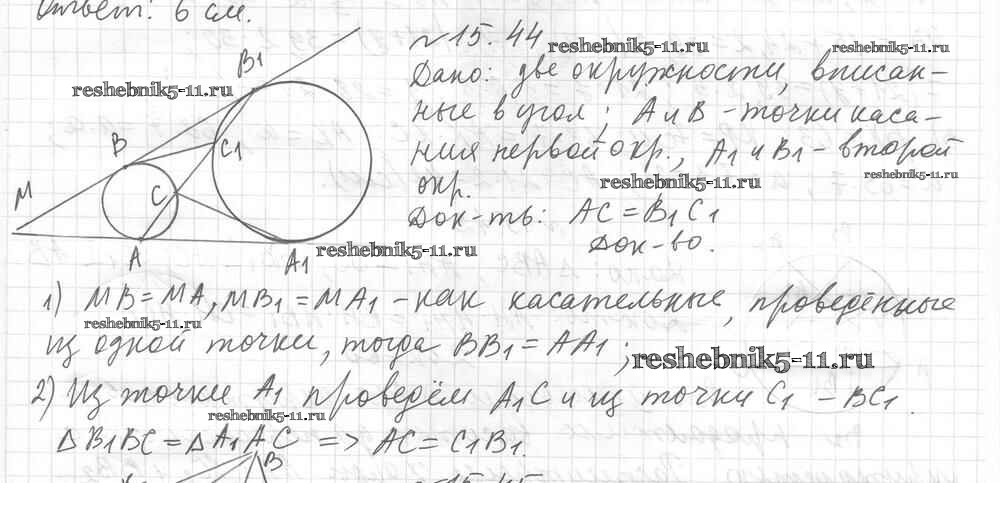 Ответ: 6 см.
№15.44
reshebnik5-11.ru
reshebnik5-11.ru
Дано: две окружности, вписан-
reshebnik5-11.ru
ные в угол; A и B - точки каса-
ния первой окр., A1 и B1 - второй
окр.
reshebnik5-11.ru
reshebnik5-11.ru
Док-ть: AC = B1C1
Док-во.
B1
B
C1
M
C
A
A1
reshebnik5-11.ru
1) MB = MA, MB1 = MA1 - как касательные, проведённые
reshebnik5-11.ru
из одной точки, тогда BB1 = AA1;
reshebnik5-11.ru
2) Из точки A1 проведём A1C и из точки C1 - BC1.
reshebnik5-11.ru
△B1BC = △A1AC => AC = C1B1.
B